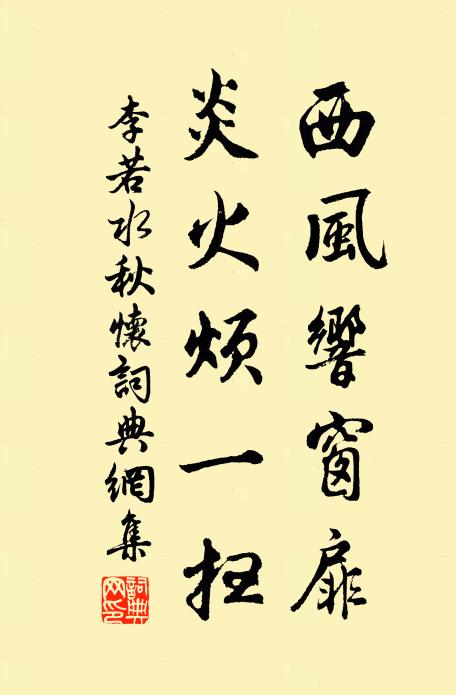 西風響窗扉
炎火煩一
李若水秋懷詞典網集
詞典
网印